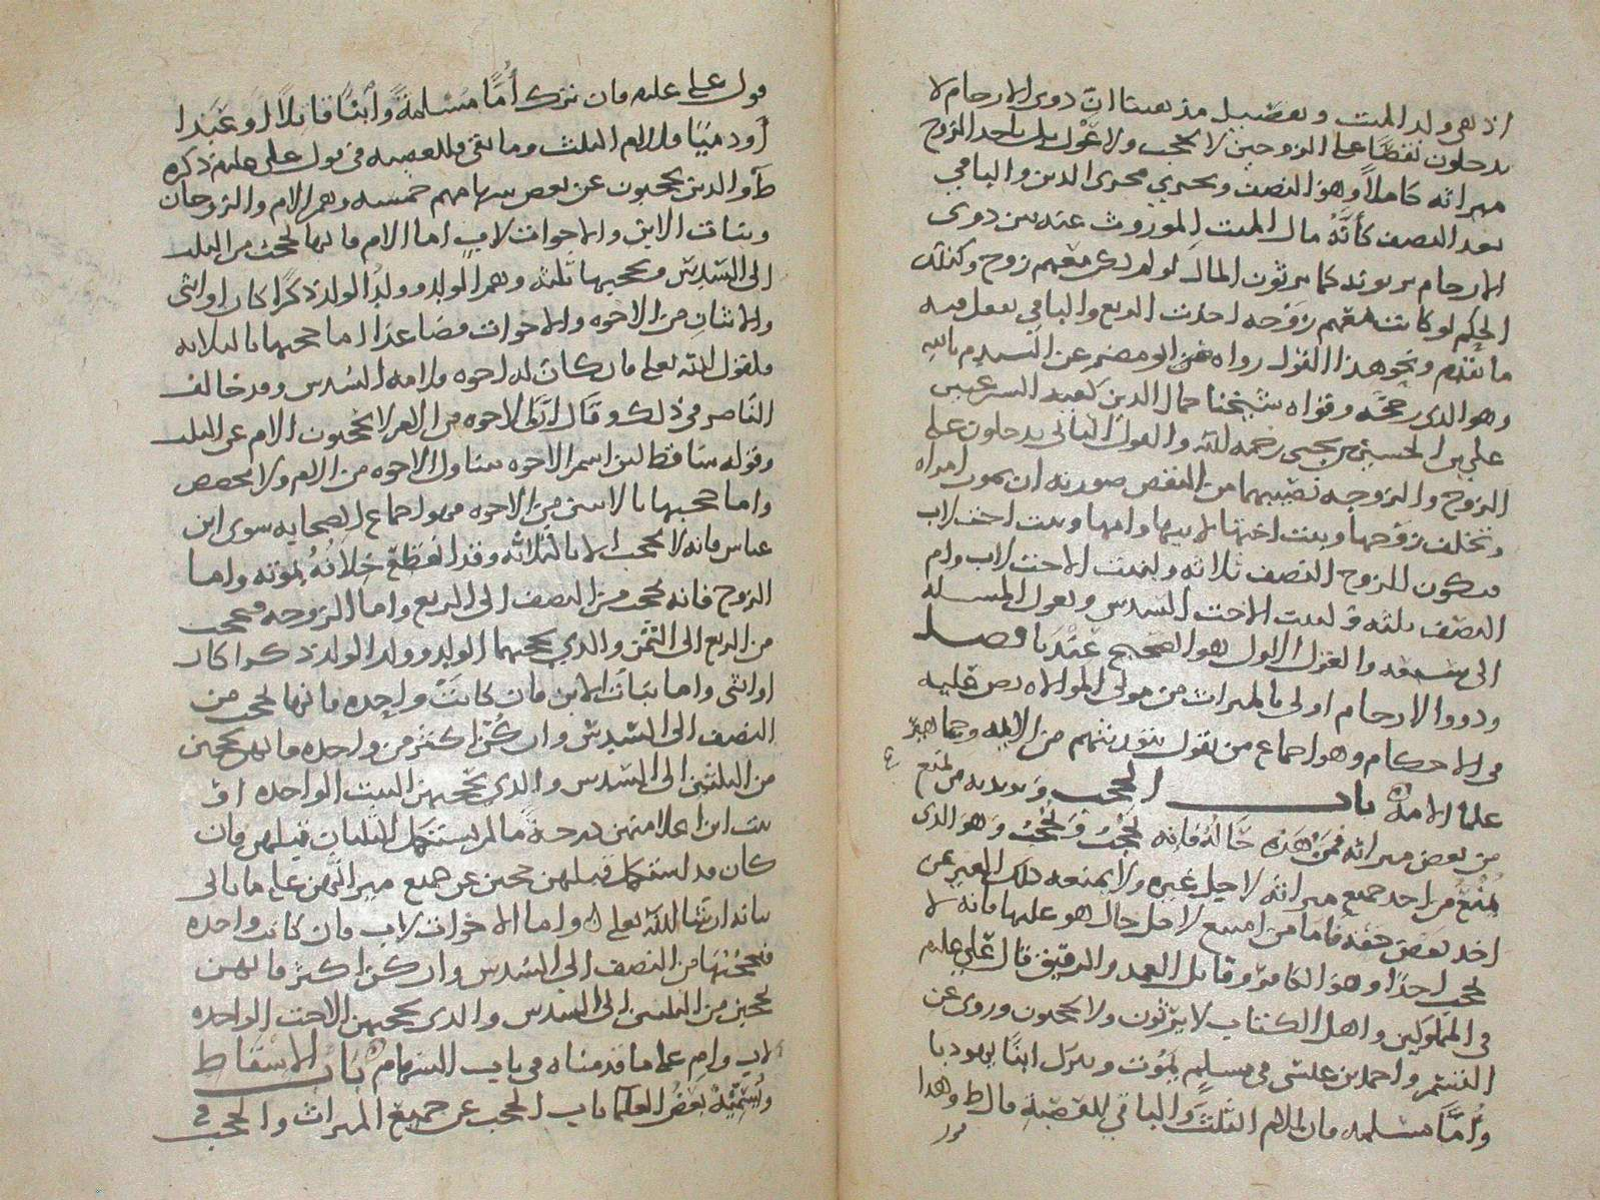 اذ هم ولد الميت وتعضيل مذهبنا ان ذوى الارحام لا
يدخلون نقصا على الزوجين لا بحجب ولا عول بل ياخذ الزوج
ميراثه كاملا وهو النصف ويجري مجرى الدين والباقي
بعد النصف كأنه مال الميت الموروث عنه من ذوى
الارحام يرثونه كما يرثون المال لو لم يكن معهم زوج وكذلك
الحكم لو كانت معهم زوجه اخذت الربع والباقي يعمل فيه
ما تقدم ونحو هذا القول رواه ابو مضر عن السيد م بالله
وهو الذى رجحه وقواه شيخنا جمال الدين
علي بن الحسين بن يحيى رحمه الله والقول الثاني يدخلون على
الزوج والزوجه نصيبهما من النقص صورته ان تموت امراه
وتخلف زوجها وبنت اختها لابيها وامها وبنت اخت لاب
فيكون للزوج النصف ثلاثه ولبنت الاخت لاب وام
النصف ثلثه ولبنت الاخت السدس وتعول المسله
الى سبعه والقول الاول هو الصحيح عندنا فصل
وذووا الارحام اولى بالميراث من مولى الموالاه نص عليه
فى الاحكام وهو اجماع من يقول بتوريثهم من الايمه وجماهير
علما الامه باب الحجب
من بعض ميراثه فمن هذه حاله فانه يحجب ويحجب وهو الذى
يمنع من اخذ جميع ميراثه لاجل غيره ولا يمنعه ذلك الغير عن
اخذ بعض حقه فاما من امتنع لاجل حال هو عليها فانه لا
يحجب احدا وهو الكافر وقاتل العمد والرقيق قال علي عليلم
فى المملوكين واهل الكتاب لا يرثون ولا يحجبون وروى عن
احمد بن عيسى فى مسلم يموت ويترك ابنا يهوديا
وأما مسلمه فان للام الثلث والباقي للعصبة قال ط وهذا
قول علي عليلم فان ترك أما مسلمة وأبنا قاتلا او عبدا
أو ذميا فللام الثلث وما بقى فللعصبه فى قول على عليلم ذكره
ط والذين يحجبون عن بعض سهامهم خمسه وهم الام والزوجان
وبنات الابن والاخوات لاب اما الام فانها تحجب من الثلث
الى السدس ويحجبها ثلثه وهم الولد وولد الولد ذكرا كان او انثى
والاثنان من الاخوه والاخوات فصاعدا اما حجبها بالثلاثه
فلقول الله تعلى فان كان له اخوه فلامه السدس وقد خالف
الناصر فى ذلك وقال ان الاخوه من الام لا يحجبون الام عن الثلث
وقوله ساقط لان اسم الاخوه يتناول الاخوه من الام ولا يخصص
واما حجبها بالاثنين من الاخوه فهو اجماع الصحابه سوى ابن
عباس فانه لا يحجب الا بالثلاثه وقد انقطع خلافه بموته واما
الزوج فانه يحجب من النصف الى الربع واما الزوجه فتحجب
من الربع الى الثمن والذي يحجبهما الولد وولد الولد ذكرا كان
او انثى واما بنات الابن فان كانت واحده فانها تحجب من
النصف الى السدس وان كن اكثر من واحده فانهن يحجبن
من الثلثين الى السدس والذى يحجبهن البنت الواحده او
بنت ابن اعلا منهن درجة ما لم يستكمل الثلثان قبلهن فان
كان قد استكمل قبلهن حجبن عن جميع ميراثهن على ما ياتى
بيانه ان شا الله تعلى واما الاخوات لاب فان كانت واحده
فحجبها من النصف الى السدس وان كن اكثر فانهن
يحجبن من الثلثين الى السدس والذى يحجبهن الاخت الواحده
لاب وام على ما قدمناه فى باب السهام باب الاسقاط
ويسميه بعض العلما باب الحجب عن جميع الميراث والحجب فى